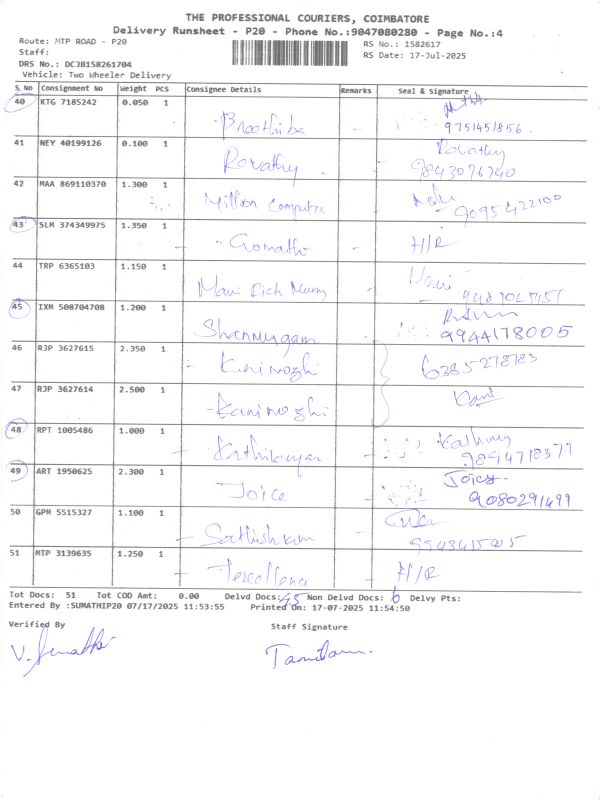 THE PROFESSIONAL COURIERS, COIMBATORE
Delivery Runsheet - P20 - Phone No.:9047080280 - Page No.:4
Route: MTP ROAD - P20 RS No.: 1582617
Staff: RS Date: 17-Jul-2025
DRS No.: DCJB158261704
Vehicle: Two Wheeler Delivery
S.No Consignment No Weight PCS Consignee Details Remarks Seal & Signature
40 KTG 7185242 0.050 1
Preethiba 9751451856.
41 NEY 40199126 0.100 1 Revathy
Revathy 9843076740
42 MAA 869110370 1.300 1
Million Computer 9095422100
43 SLM 374349975 1.350 1
Gomathi H/R
44 TRP 6365103 1.150 1
Mani
45 IXM 508704708 1.200 1
Shanmugam 9944178005
46 RJP 3627615 2.350 1
Kanimozhi 6385278783
47 RJP 3627614 2.500 1
Kanimozhi Kani
48 RPT 1005486 1.000 1
Kathikeyan 9894718377
49 ART 1950625 2.300 1 Joice
Joice 9080291499
50 GPM 5515327 1.100 1
Sathishkum
51 MTP 3139635 1.250 1
H/R
Tot Docs: 51 Tot COD Amt: 0.00 Delvd Docs: 45 Non Delvd Docs: 6 Delvy Pts:
Entered By :SUMATHIP20 07/17/2025 11:53:55 Printed On: 17-07-2025 11:54:50
Verified By Staff Signature